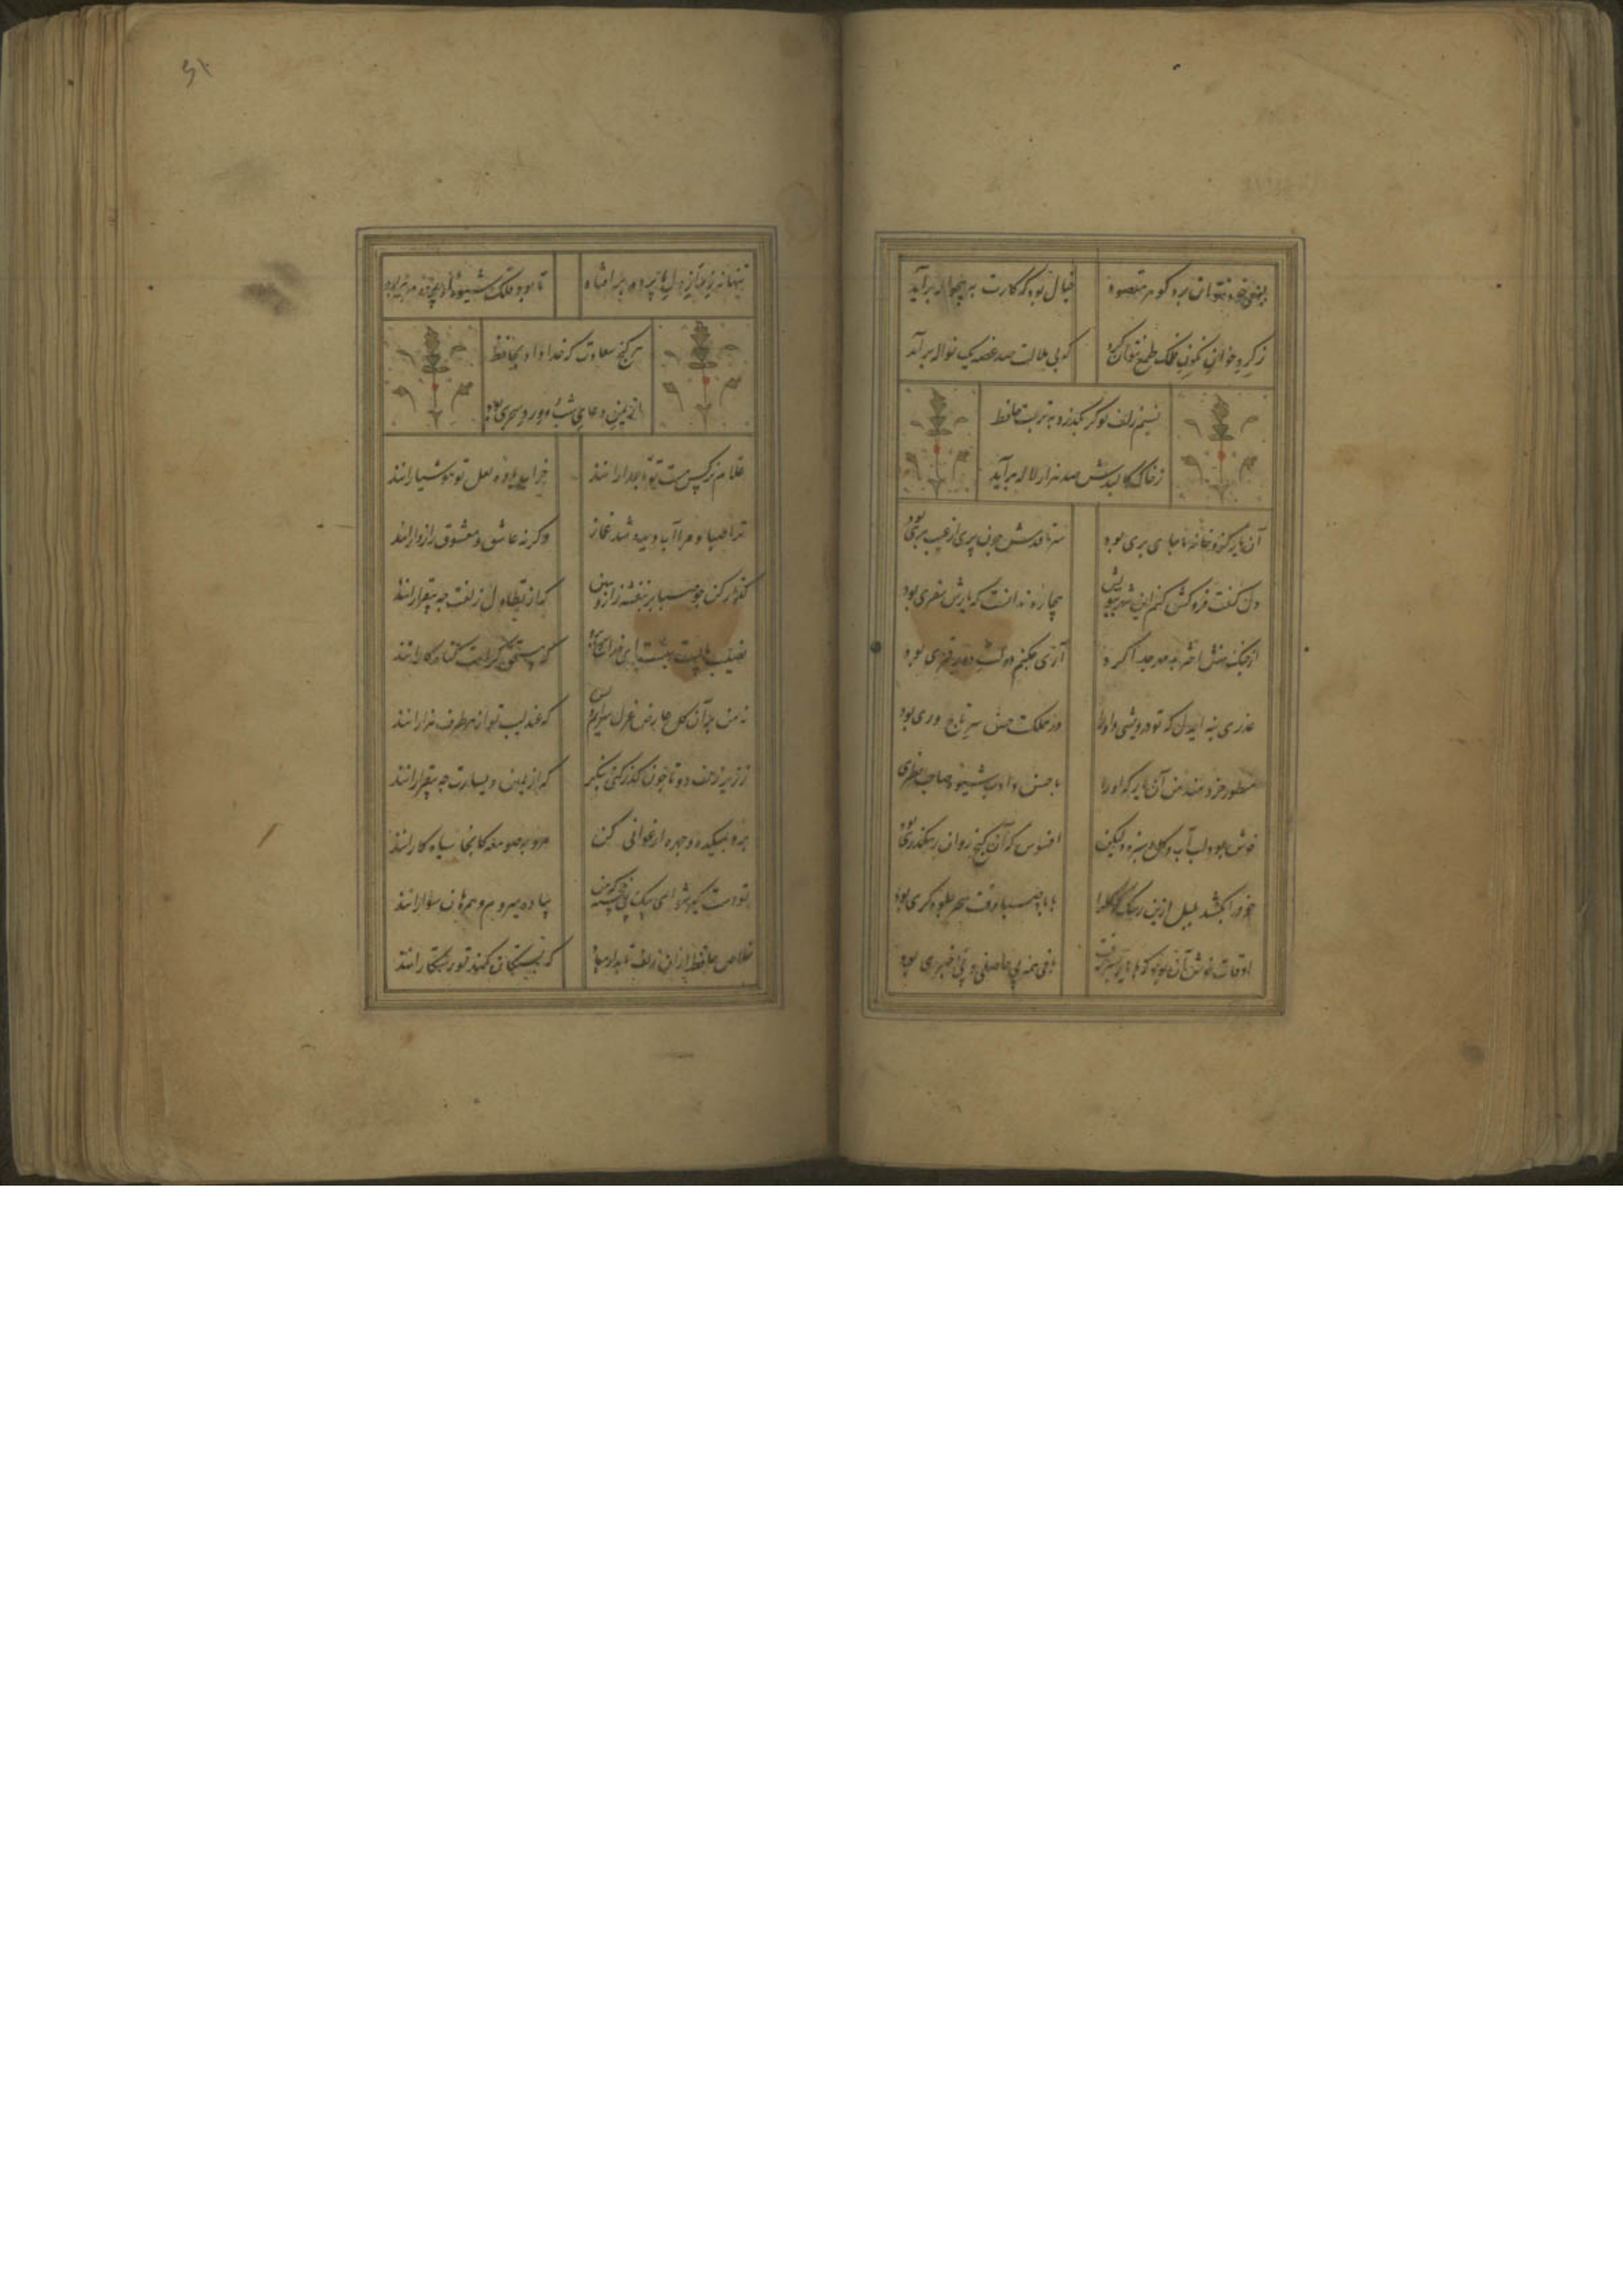 بسعی خود نتوان برد گوهر مقصود
خیال بود که کارت به حواله برآید
ز گرد خوان نگون فلک طمع نتوان کرد
که بی ملالت صد غصه یک نواله برآید
نسیم زلف تو گر بگذرد به تربت حافظ
ز خاک کالبدش صد هزار لاله برآید
آن یار کزو خانه ما جای پری بود
سر تا قدمش چون پری از عیب بری بود
دل گفت فروکش کنم این شهر ببویش
بیچاره ندانست که یارش سفری بود
از چنگ منش اختر بد مهر جدا کرد
آری چکنم دولت دور قمری بود
عذری بنه ای دل که تو درویشی و او را
در مملکت حسن سر تاج وری بود
منظور خردمند من آن یار که او را
با حسن و ادب شیوه صاحب نظری بود
خوش بود لب آب و گل و سبزه ولیکن
افسوس که آن گنج روان رهگذری بود
خود را بکشد بلبل ازین رشک که گل را
با باد صبا وقت سحر جلوه گری بود
اوقات خوش آن بود که با یار بسر رفت
باقی همه بی حاصلی و بی خبری بود
تنها نه ز راز دل ما پرده برافتاد
تا بود فلک شیوه او پرده دری بود
هر گنج سعادت که خدا داد بحافظ
از یمن دعای شب و ورد سحری بود
غلام نرگس مست تو تاجدارانند
خراب باده لعل تو هوشیارانند
ترا صبا و مرا آب دیده شد غماز
وگرنه عاشق و معشوق رازدارانند
گذار کن چو صبا بر بنفشه زار و ببین
که از تطاول زلفت چه بیقرارانند
نصیب ماست بهشت ای خداشناس برو
که مستحق کرامت گناه کارانند
نه من بر آن گل عارض غزل سرایم و بس
که عندلیب تو از هر طرف هزارانند
ز زیر زلف دو تا چون گذر کنی بنگر
که از یمین و یسارت چه بیقرارانند
برو بمیکده و چهره ارغوانی کن
مرو بصومعه کانجا سیاه کارانند
تو دست گیر شو ای پی خجسته که من
پیاده میروم و همرهان سوارانند
خلاص حافظ از آن زلف تابدار مباد
که بستگان کمند تو رستگارانند